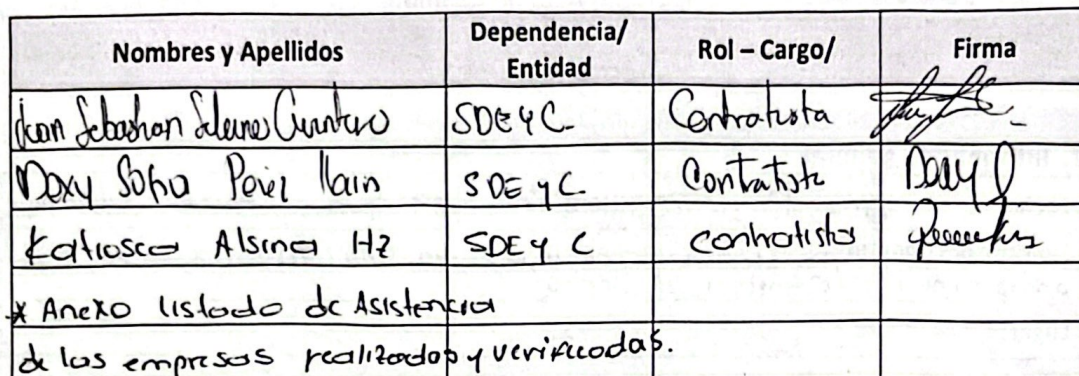 Nombres y Apellidos Dependencia/ Entidad Rol – Cargo/ Firma
Sebastian SDEYC Contratista
Dexy Sofia Perez SDE y C Contratista Dexy
Katiosca Alsina Hz SDE y C contratista
* Anexo listado de Asistencia
de las empresas realizadas y verificadas.